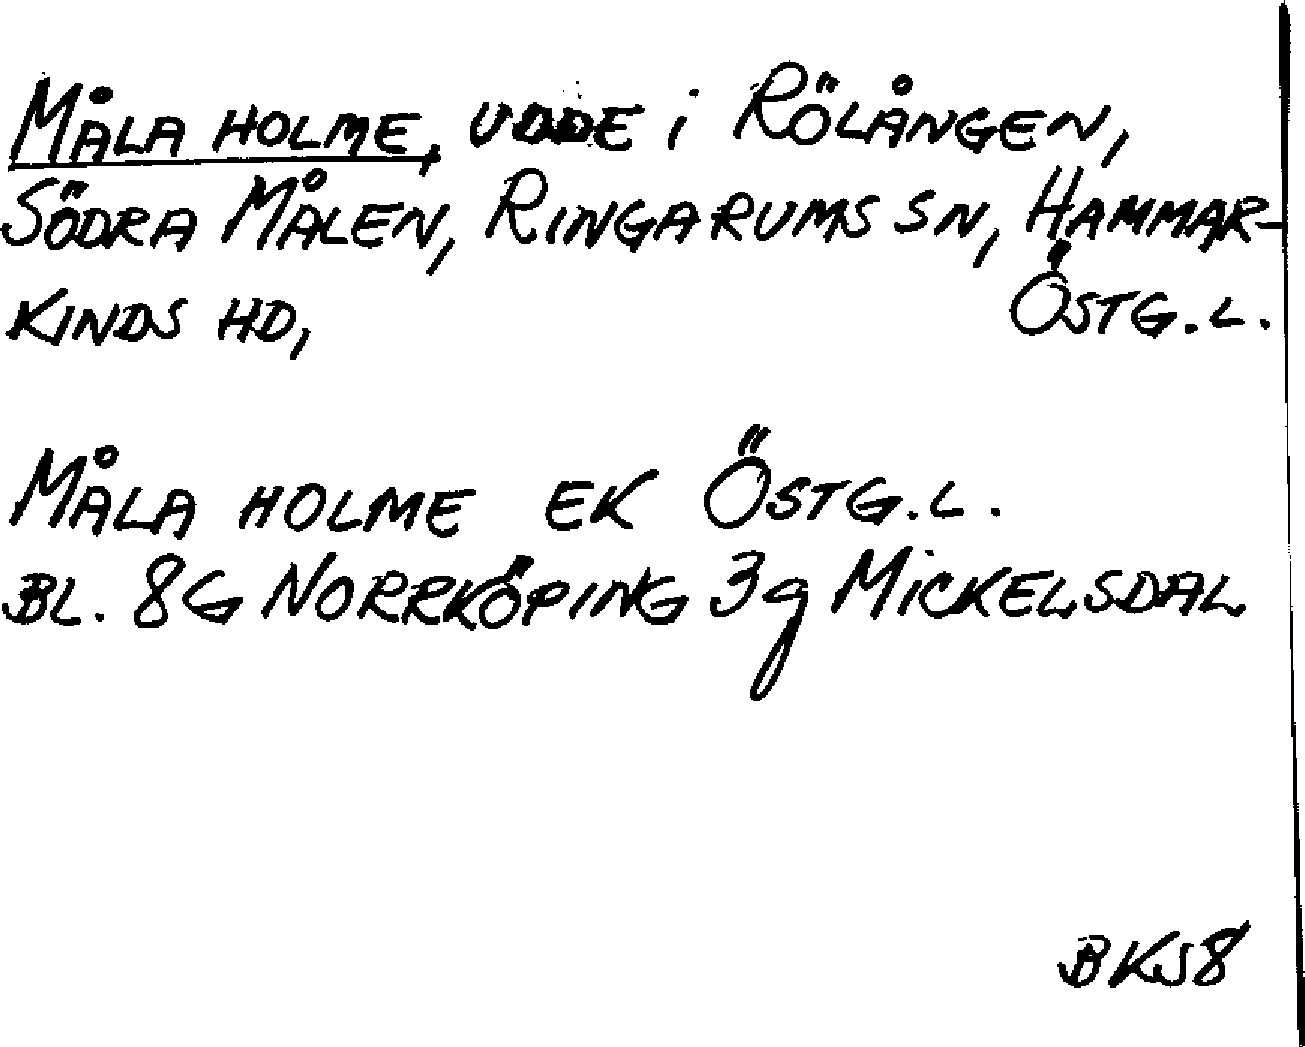 MÅLA HOLME, UDDE i RÖLÅNGEN,
SÖDRA MÅLEN, RINGARUMS SN, HAMMAR-
KINDS HD, ÖSTG.L.
MÅLA HOLME EK ÖSTG.L.
BL. 8G NORRKÖPING 3g MICKELSDAL
BKS8